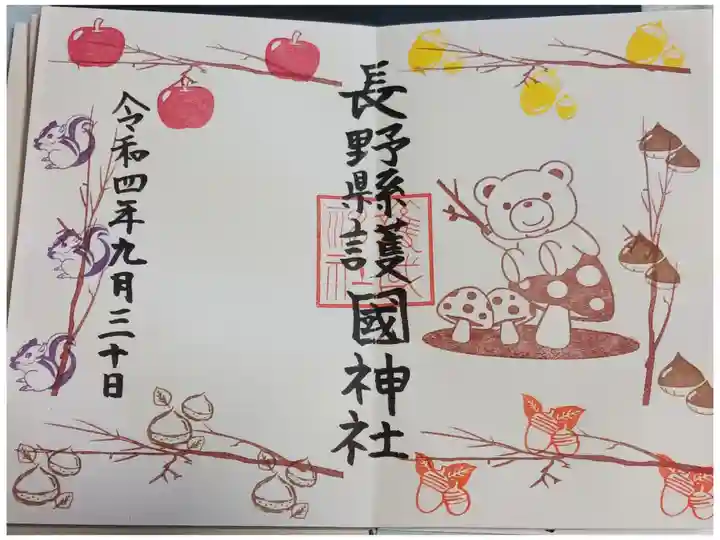 長野縣護國神社
令和四年九月三十日